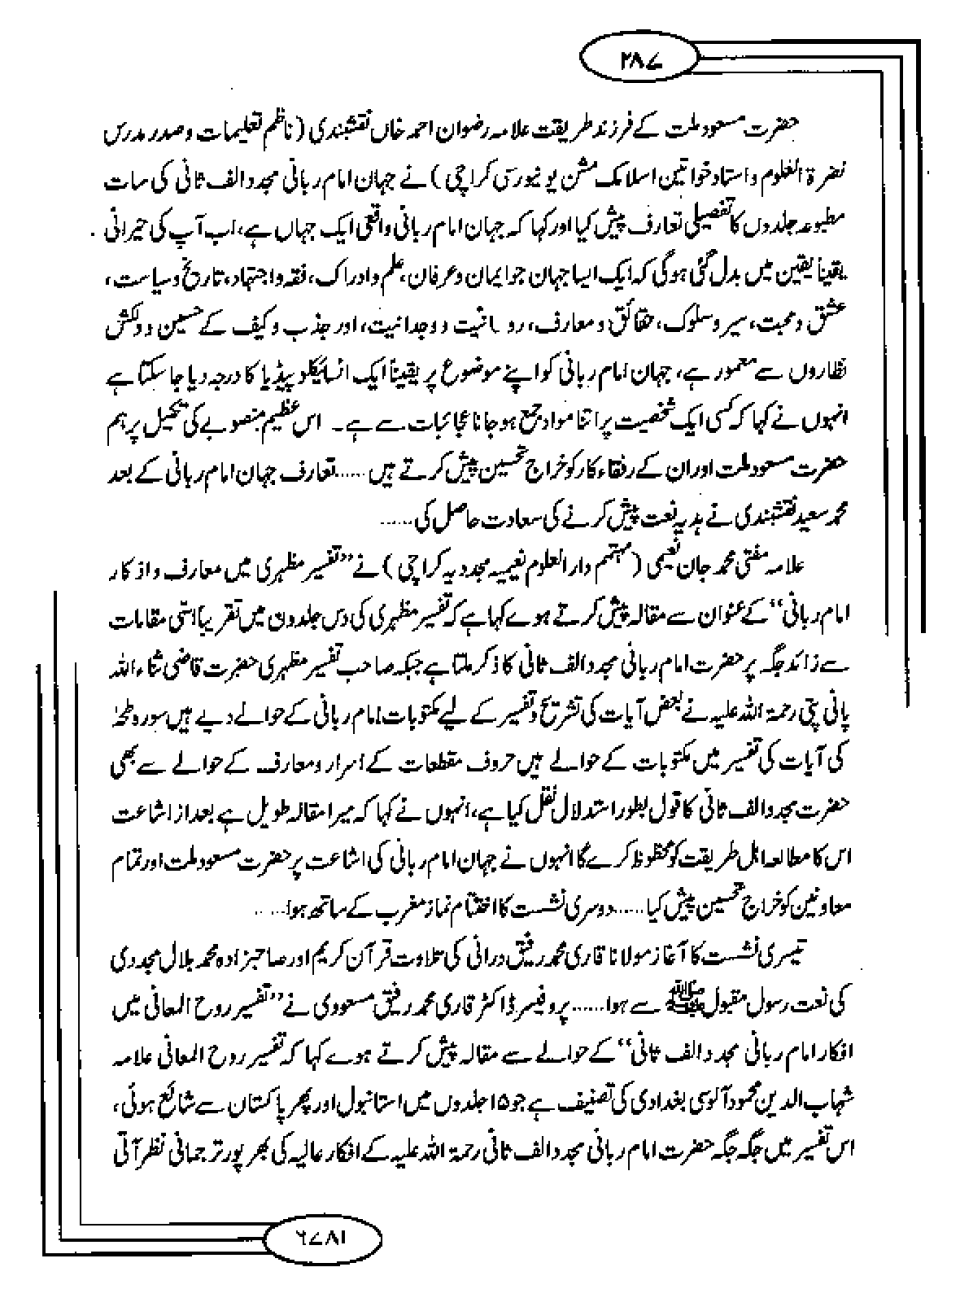 ۲۸۷
حضرت مسعود ملت کے فرزند طریقت علامہ رضوان احمد خاں نقشبندی (ناظم تعلیمات و صدر مدرس
نضرۃ العلوم و استاد خواتین اسلامک مشن یونیورسی کراچی) نے جہان امام ربانی مجدد الف ثانی کی سات
مطبوعہ جلدوں کا تفصیلی تعارف پیش کیا اور کہا کہ جہان امام ربانی واقعی ایک جہاں ہے، اب آپ کی حیرانی
یقیناً یقین میں بدل گئی ہوگی کہ ایک ایسا جہان جو ایمان و عرفان، علم و ادراک، فقہ و اجتہاد، تاریخ و سیاست،
عشق و محبت، سیر و سلوک، حقائق و معارف، روحانیت و وجدانیت، اور جذب و کیف کے حسین و دلکش
نظاروں سے معمور ہے، جہان امام ربانی کو اپنے موضوع پر یقیناً ایک انسائیکلو پیڈیا کا درجہ دیا جا سکتا ہے
انہوں نے کہا کہ کسی ایک شخصیت پر اتنا مواد جمع ہو جانا عجائبات سے ہے۔ اس عظیم منصوبے کی تکمیل پر ہم
حضرت مسعود ملت اور ان کے رفقاء کار کو خراج تحسین پیش کرتے ہیں ......تعارف جہان امام ربانی کے بعد
محمد سعید نقشبندی نے ہدیہ نعت پیش کرنے کی سعادت حاصل کی......
علامہ مفتی محمد جان نعیمی (مہتمم دار العلوم نعیمیہ مجددیہ کراچی) نے ”تفسیر مظہری میں معارف و اذکار
امام ربانی“ کے عنوان سے مقالہ پیش کرتے ہوے کہا ہے کہ تفسیر مظہری کی دس جلدون میں تقریباً اسّی مقامات
سے زائد جگہ پر حضرت امام ربانی مجدد الف ثانی کا ذکر ملتا ہے جبکہ صاحب تفسیر مظہری حضرت قاضی ثناء اللہ
پانی پتی رحمۃ اللہ علیہ نے بعض آیات کی تشریح و تفسیر کے لیے مکتوبات امام ربانی کے حوالے دیے ہیں سورہ طٰہٰ
کی آیات کی تفسیر میں مکتوبات کے حوالے ہیں حروف مقطعات کے اسرار و معارف کے حوالے سے بھی
حضرت مجدد الف ثانی کا قول بطور استدلال نقل کیا ہے، انہوں نے کہا کہ میرا مقالہ طویل ہے بعد از اشاعت
اس کا مطالعہ اہل طریقت کو محظوظ کرے گا انہوں نے جہان امام ربانی کی اشاعت پر حضرت مسعود ملت اور تمام
معاونین کو خراج تحسین پیش کیا......دوسری نشست کا اختتام نماز مغرب کے ساتھ ہوا......
تیسری نشست کا آغاز مولانا قاری محمد رفیق درانی کی تلاوت قرآن کریم اور صاحبزادہ محمد بلال مجددی
کی نعت رسول مقبول ﷺ سے ہوا......پروفیسر ڈاکٹر قاری محمد رفیق مسعودی نے ”تفسیر روح المعانی میں
افکار امام ربانی مجدد الف ثانی“ کے حوالے سے مقالہ پیش کرتے ہوے کہا کہ تفسیر روح المعانی علامہ
شہاب الدین محمود آلوسی بغدادی کی تصنیف ہے جو ۱۵ جلدوں میں استانبول اور پھر پاکستان سے شائع ہوئی،
اس تفسیر میں جگہ جگہ حضرت امام ربانی مجدد الف ثانی رحمۃ اللہ علیہ کے افکار عالیہ کی بھرپور ترجمانی نظر آتی